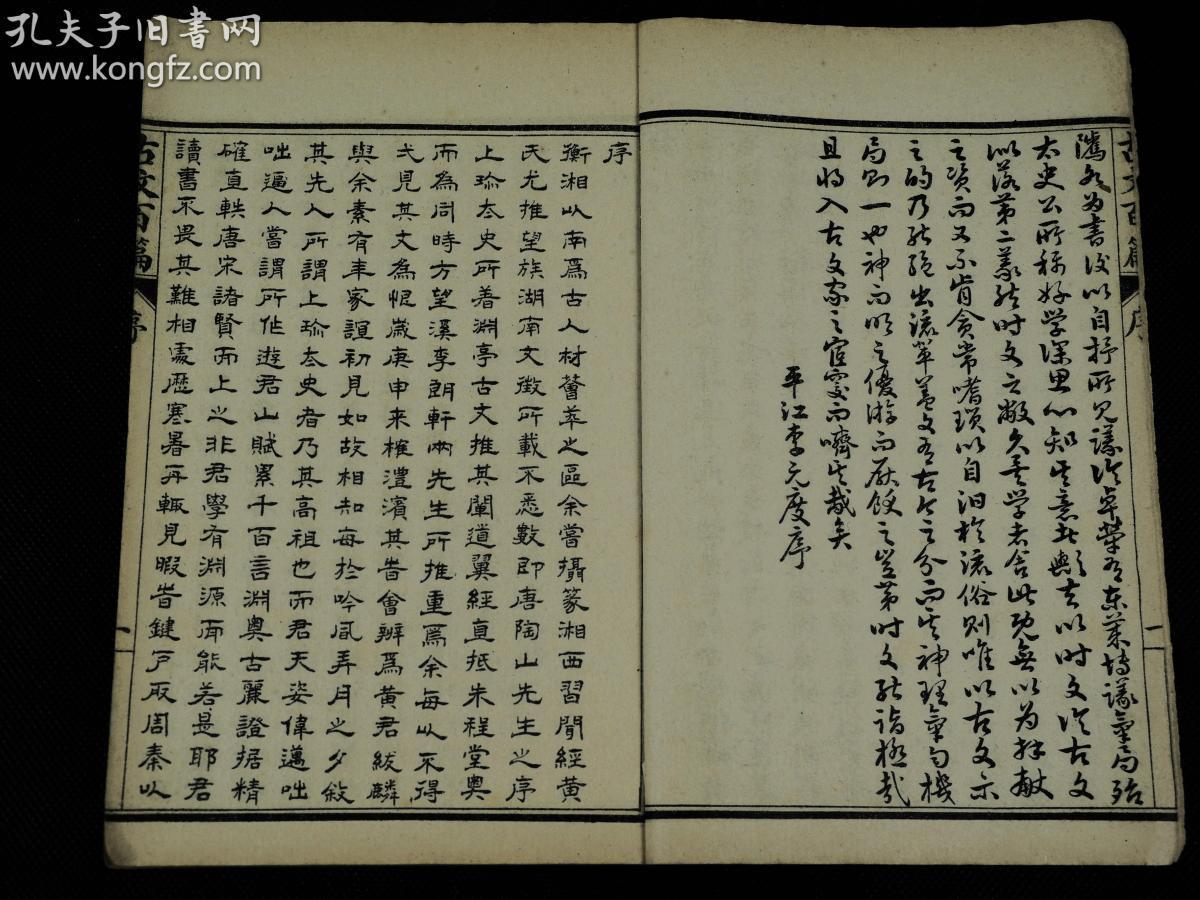 孔夫子旧书网
www.kongfz.com
古文百篇
序
一
為書後以自抒所見議論卓犖有東萊博議氣局殆
太史公所称好学深思心知其意者歟吉以时文论古文
以落第二義然时文之敝久矣学者舍此既無以为拜献
之资而又不肯贪常嗜琐以自汩於流俗则唯以古文示
之的乃能强出流輩蓋文有古今之分而其神理氣勻機
局则一也神而明之優游而厭飫之豈第时文能詣極哉
且将入古文家之宦窔而嚌其胾矣
平江李元度序
序
衡湘以南為古人材薈萃之區余嘗攝篆湘西習聞經黃
氏尤推望族湖南文徵所載不悉數即唐陶山先生之序
上珍太史所著淵亭古文推其闡道翼經直抵朱程堂奧
而為同時方望溪李朗軒兩先生所推重焉余每以不得
弋見其文為恨歲庚申來榷澧濱其時會辦為黃君紱麟
與余素有年家誼初見如故相知每於吟風弄月之夕敘
其先人所謂上珍太史者乃其高祖也而君天姿偉邁咄
咄逼人嘗謂所作遊君山賦累千百言淵奧古麗證据精
確直軼唐宋諸賢而上之非君學有淵源而能若是耶君
讀書不畏其難相處歷寒暑再輒見暇時鍵戶取周秦以
古文百篇
序
一